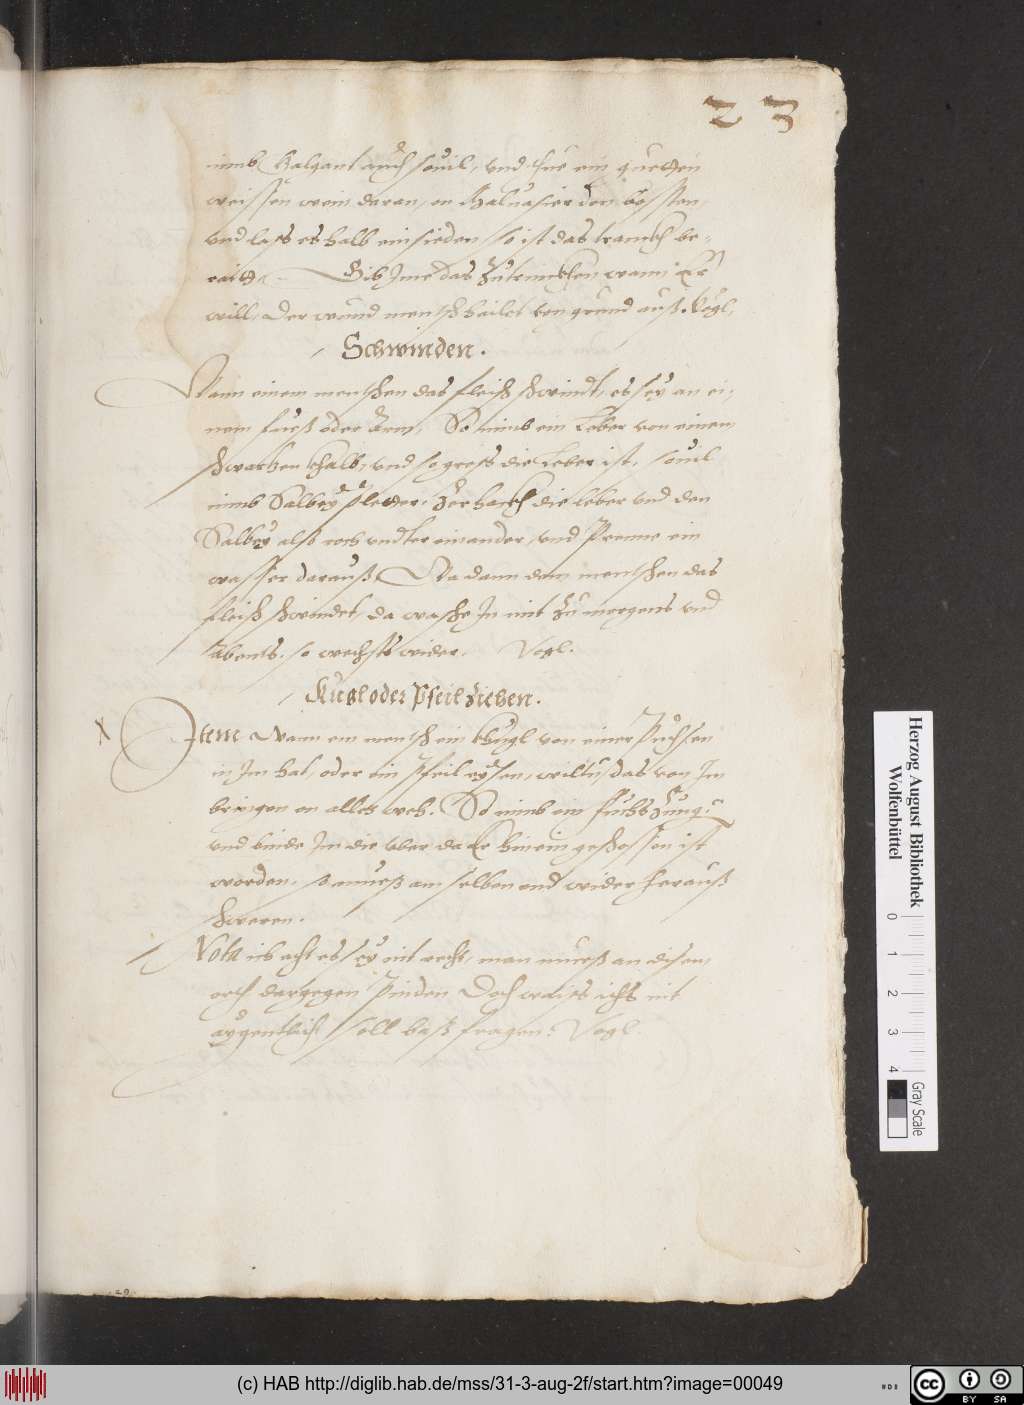 23
nimb Galgant auch souil, und thue ein guetten
weissen wein daran, en Maluasier den bessten,
und lass es halb einsieden so ist das tranckh be-
raitt. Gib Ime das Zutrinckhen wann Er
will, Der wund mensch hailet von grund auß. Vogl.
Schwinden.
Wann einem menschen das fleisch schwindt, es sey an ei-
nem fueß oder Arm, So nimb ein Leber von einem
schwartzen khalb, und so gross die Leber ist, souil
nimb Salbey Pletter, Zerhackh die leber und den
Salbey also roch undter einander, und Prenne ein
wasser darauß, Wa dann dem menschen das
fleisch schwindet, da wasche In mit Zu morgens und
Abents. so wechsts wider. Vogl.
Kugl oder Pfeil Ziehen.
Item Wann ein mensch ein Khugl von einer Püchsen
in Im hat, oder ein Pfeil eysen, wiltu das von Im
bringen on alles weh. So nimb ein fuchs Zung,
und binde Im die uber da Er hinein geschossen ist
worden, so mueß am selben end wider herauß
schweren.
Nota ich acht es sey nit recht, man mueß an disen
orth dargegen Pinden Doch waiss ichs nit
aygentlich soll baß fragen. Vogl
Herzog August Bibliothek
Wolfenbüttel
0 1 2 3 4
Gray Scale
(c) HAB http://diglib.hab.de/mss/31-3-aug-2f/start.htm?image=00049
cc BY SA